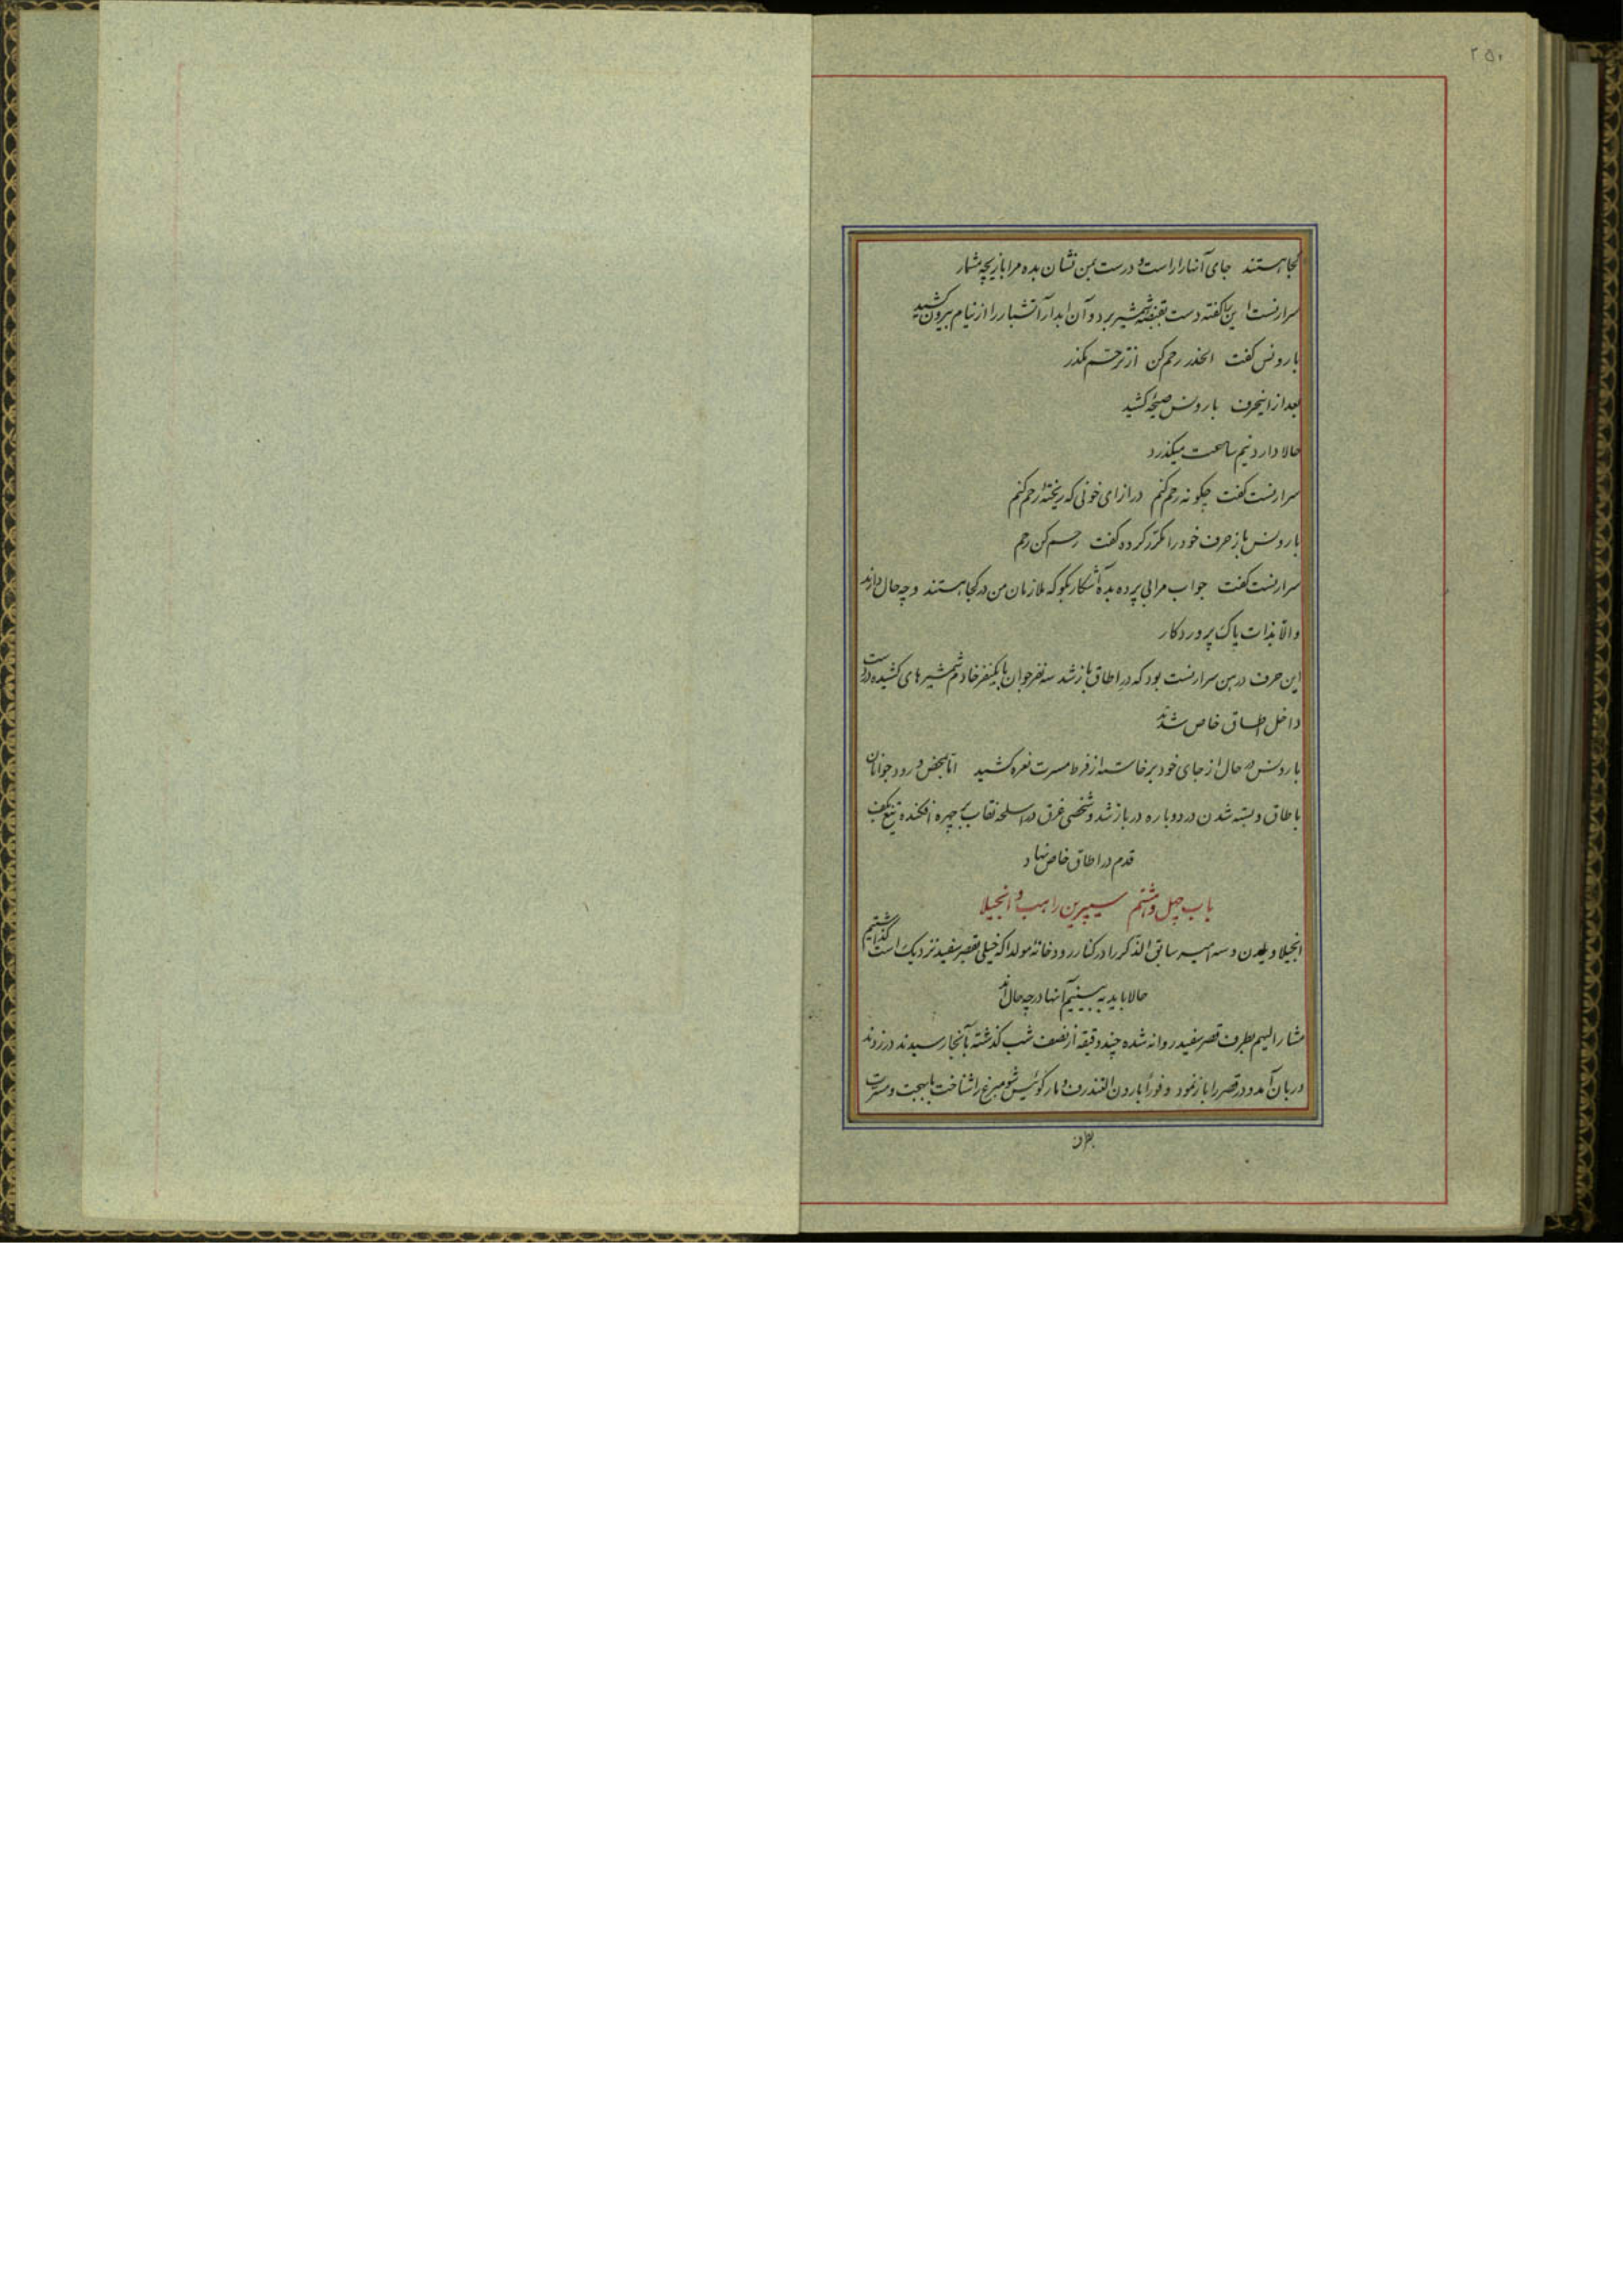 ۲۵۰
کجا هستند جای آنها را راست و درست بمن نشان بده مرا بازیچه مشمار
سرارنست این بگفته دست بقبضه شمشیر برد و آن ابدار آتشبار را از نیام بیرون کشید
بارونس گفت الحذر رحم کن از ترحم مگذر
بعد از اینحرف بارونس صیحه کشید
حالا دارد نیم ساعت میگذرد
سرارنست گفت چگونه رحم کنم در ازای خونی که ریختهٔ رحم کنم
بارونس باز حرف خود را مکرر کرده گفت رحم کن رحم
سرارنست گفت جواب مرا بی پرده بده آشکار بگو که ملازمان من در کجا هستند و چه حال دارند
والا بذات پاک پروردکار
این حرف در دهن سرارنست بود که در اطاق باز شد سه نفر جوان با یکنفر خادم شمشیرهای کشیده در دست
داخل اطاق خاص شدند
بارونس در حال از جای خود برخاست از فرط مسرت نعره کشید اما بمحض ورود جوانان
باطاق و بسته شدن در دوباره در باز شد و شخصی غرق در اسلحه نقاب بر چهره افکنده تیغ بکف
قدم در اطاق خاص نهاد
باب چهل و هشتم سیپرین راهب و انجیلا
انجیلا ویلدن و سه امیر سابق الذکر را در کنار رودخانه مولدا که خیلی بقصر سفید نزدیک است گذاشتیم
حالا باید به بینیم آنها در چه حال اند
مشار الیهم بطرف قصر سفید روانه شده چند دقیقه از نصف شب گذشته بآنجا رسیدند در زدند
دربان آمد و در قصر را باز نمود و فوراً بارون القندرف و مارکوئیس شومبرغ را شناخت با بهجت و مسرت